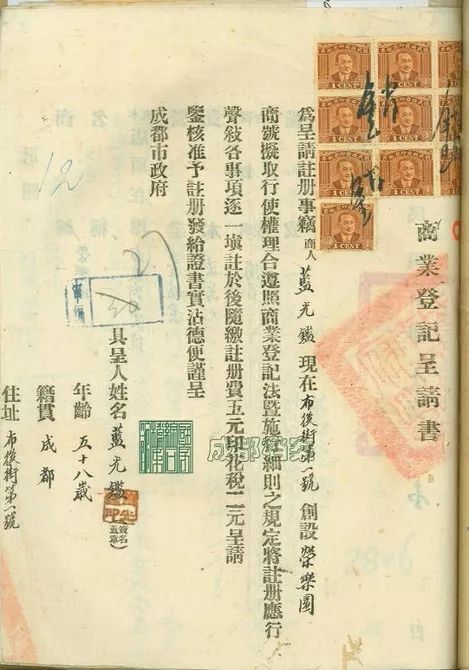 商業登記呈請書
為呈請註册事竊商人藍光鑑現在布後街第一號創設榮樂園
商號擬取行使權理合遵照商業登記法暨施行細則之規定將註册應行
聲敍各事項逐一塡註於後隨繳註册費五元印花稅二元呈請
鑒核准予註册發給證書實沾德便謹呈
成都市政府
具呈人姓名藍光鑑(簽名蓋章)
年齡五十八歲
籍貫成都
住址布後街第一號
1 CENT
1 CENT
1 CENT
1 CENT
1 CENT
1 CENT
1 CENT
12